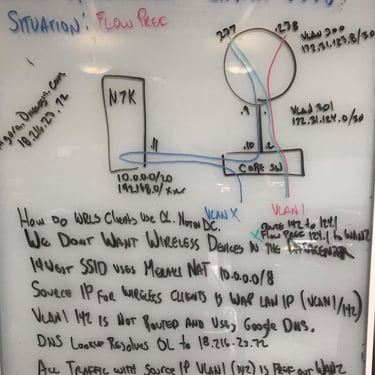 SITUATION: FLOW PREF
237
238
VLAN 300
172.31.123.8/30
VLAN 301
172.31.124.0/30
.9
.10
.2
N7K
.11
CORE SW
10.0.0.0/20
192.168.0/xxx
18.216.23.72
VLAN X
VLAN 1
142 to 124.1
FLOW PREF 124.1 to WAN2
HOW DO WRLS CLIENTS USE OL. NOT IN DC.
WE DONT WANT WIRELESS DEVICES IN THE DATACENTER
14 WEST SSID USES MERAKI NAT 10.0.0.0/8
SOURCE IP FOR WIRELESS CLIENTS IS WAP LAN IP (VLAN1/142)
VLAN1 142 IS NOT ROUTED AND USES GOOGLE DNS.
DNS LOOKUP RESOLVES OL TO 18.216.23.72
ALL TRAFFIC WITH SOURCE IP VLAN1 (142) IS PREF OUT WAN2